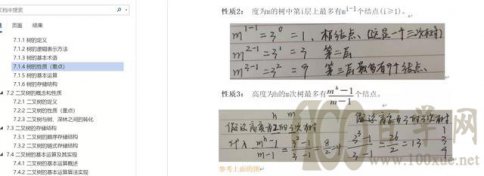 文档中搜索
标题 页面 结果
7.1.1 树的定义
7.1.2 树的逻辑表示方法
7.1.3 树的基本术语
7.1.4 树的性质（重点）
7.1.5 树的基本运算
7.1.6 树的存储结构
7.2 二叉树的概念和性质
7.2.1 二叉树的定义
7.2.2 二叉树的性质（重点）
7.2.3 二叉树与树、森林之间的转化
7.3 二叉树的存储结构
7.3.1 二叉树的顺序存储结构
7.3.2 二叉树的链式存储结构
7.4 二叉树的基本运算及其实现
7.4.1 二叉树的基本运算概述
7.4.2 二叉树的基本运算算法实现
性质2：度为m的树中第i层上最多有mⁱ⁻¹个结点(i≥1)。
m¹⁻¹=3⁰=1，根结点，(这是一个三次树)
m²⁻¹=3¹ 第二层
m³⁻¹=3²=9 第三层最多有9个结点.
性质3：高度为h的m次树最多有(mʰ-1)/(m-1)个结点。
h m
做这高度为2的三次树
参考上面的图
100百学网
www.100xue.net